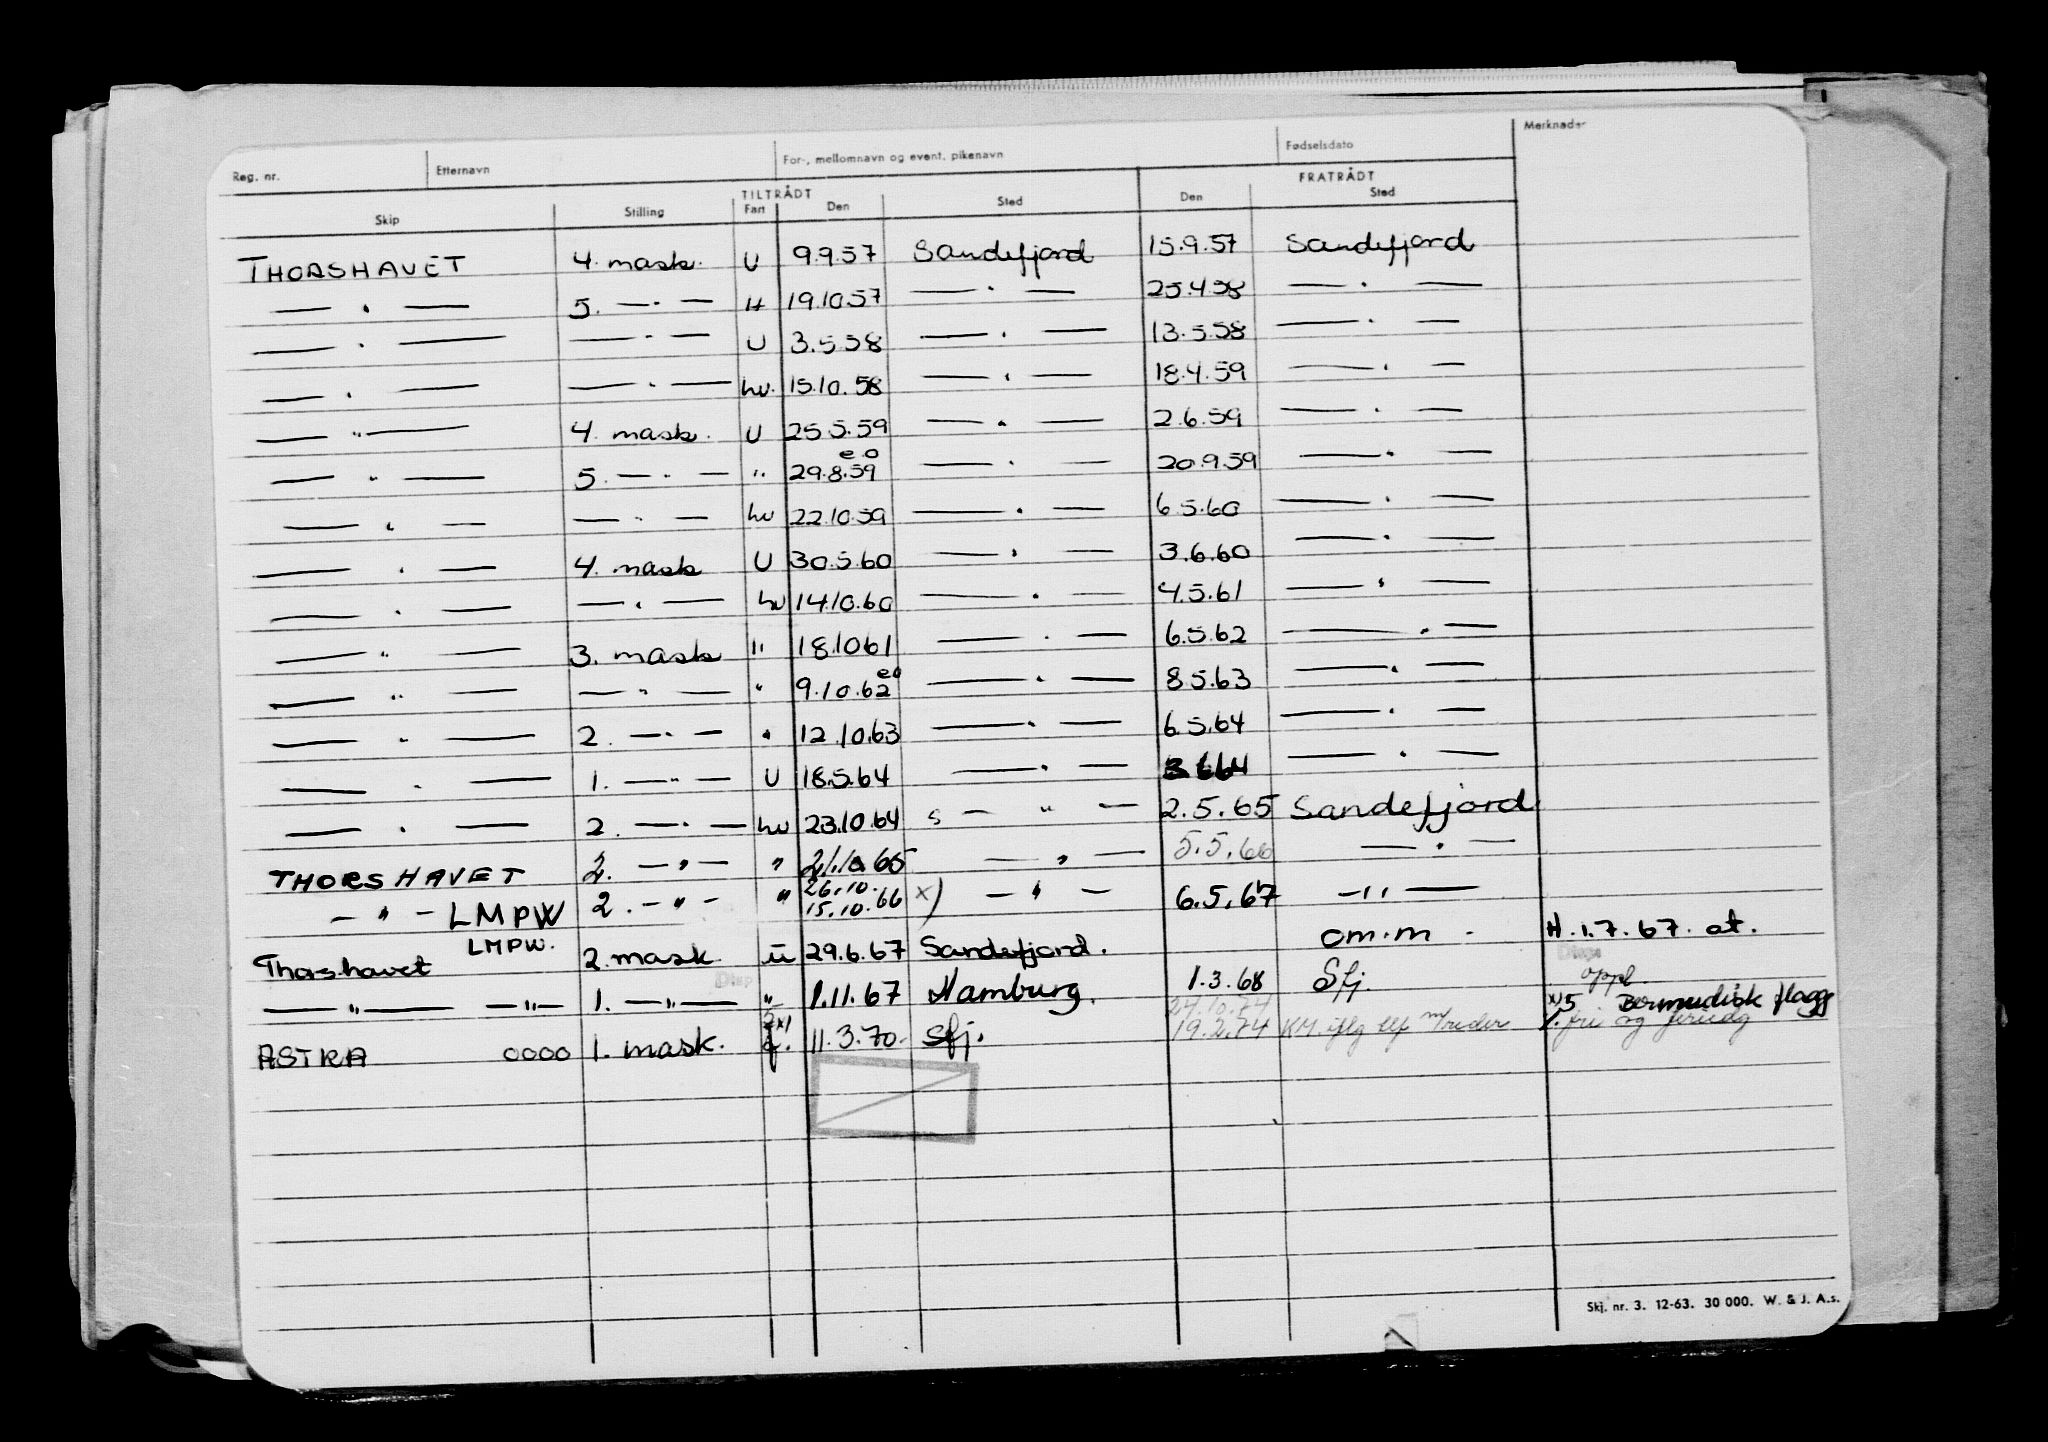 Reg. nr. Etternavn For-, mellomnavn og event. pikenavn Fødselsdato Merknader
TILTRÅDT FRATRÅDT
Skip Stilling Fart Den Sted Den Sted
THORSHAVET 4. mask. U 9.9.57 Sandefjord 15.9.57 Sandefjord
— " — 5. — " — H 19.10.57 — " — 25.4.58 — " —
— " — — " — U 3.5.58 — " — 13.5.58 — " —
— " — — " — hv. 15.10.58 — " — 18.4.59 — " —
— " — 4. mask. U 25.5.59 — " — 2.6.59 — " —
— " — 5. — " — " e.o 29.8.59 — " — 20.9.59 — " —
— " — — " — hv 22.10.59 — " — 6.5.60 — " —
— " — 4. mask U 30.5.60 — " — 3.6.60 — " —
— " — — " — hv 14.10.60 — " — 4.5.61 — " —
— " — 3. mask " 18.10.61 — " — 6.5.62 — " —
— " — — " — " 9.10.62 eo — " — 8.5.63 — " —
— " — 2. — " — " 12.10.63 — " — 6.5.64 — " —
— " — 1. — " — U 18.5.64 — " — 3.6.64 — " —
— " — 2. — " — hv 23.10.64 s — " — 2.5.65 Sandefjord
THORSHAVET 2. — " — " 21.10.65 — " — 5.5.66 — " —
26.10.
— " — LMPW 2. — " — " 15.10.66 x) — " — 6.5.67 — " —
LMPW.
Thorshavet 2. mask ü 29.6.67 Sandefjord. om.m. H. 1.7.67. at.
Disp
— " — — " — 1. — " — " 1.11.67 Hamburg. 1.3.68 Sfj. oppl.
24.10.74 x) 5 Bermudisk flagg
ASTRA 0000 1. mask. f. 11.3.70. Sfj. 19.2.74 KM. iflg tlf m/reder fri og
Skj. nr. 3. 12-63. 30 000. W. & J. A.s.